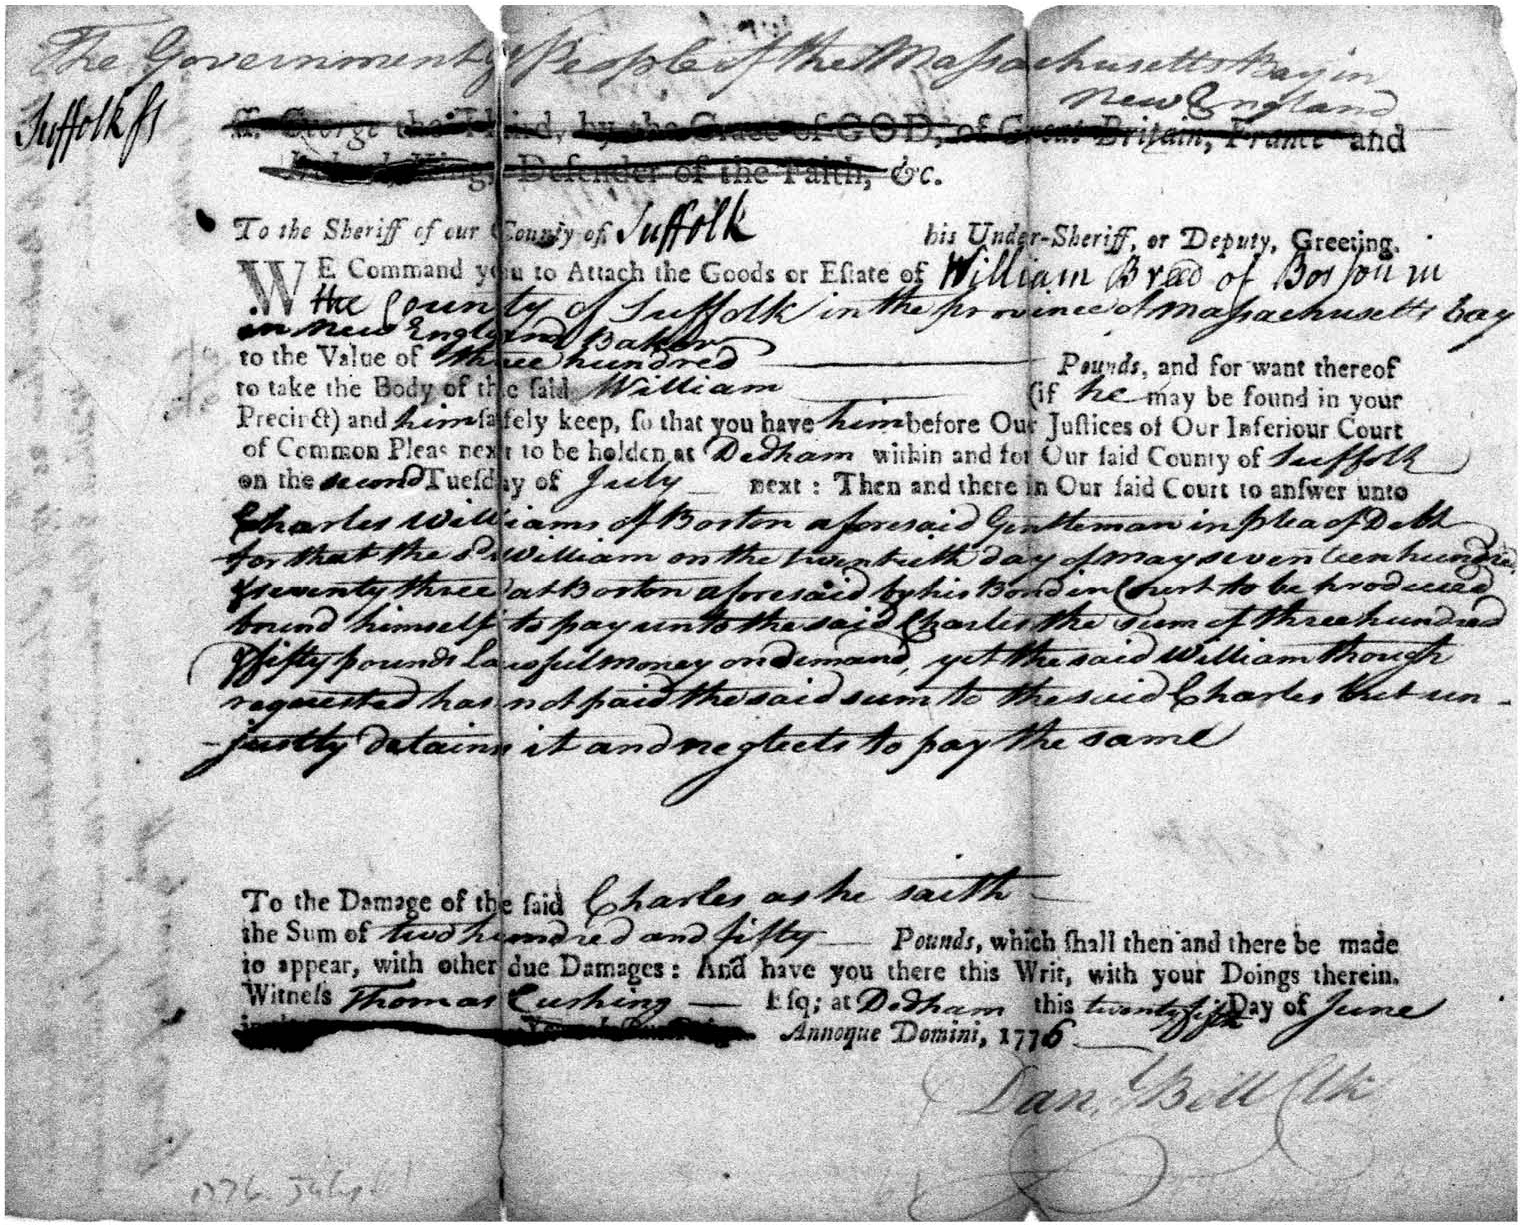 The Government & People of the Massachusetts Bay in
New England
Suffolk ss
ss. George the Third, by the Grace of GOD, of Great Britain, France and
King, Defender of the Faith, &c.
To the Sheriff of our County of Suffolk his Under-Sheriff, or Deputy, Greeting.
WE Command you to Attach the Goods or Eſtate of William Breed of Boston in
the County of Suffolk in the province of Massachusetts Bay
in New England Baker
to the Value of three hundred Pounds, and for want thereof
to take the Body of the ſaid William (if he may be found in your
Precinct) and him ſafely keep, ſo that you have him before Our Juſtices of Our Inferiour Court
of Common Pleas next to be holden at Dedham within and for Our ſaid County of Suffolk
on the second Tueſday of July next: Then and there in Our ſaid Court to anſwer unto
Charles Williams of Boston aforesaid Gentleman in plea of Debt
for that the sd. William on the twentieth day of may seventeen hundred
& seventy three at Boston aforesaid by his Bond in Court to be produced
bound himself to pay unto the said Charles the sum of three hundred
& fifty pounds lawful money on demand, yet the said William though
requested has not paid the said sum to the said Charles but un-
-justly detains it and neglects to pay the same
To the Damage of the ſaid Charles as he saith
the Sum of two hundred and fifty Pounds, which ſhall then and there be made
to appear, with other due Damages: And have you there this Writ, with your Doings therein.
Witneſs Thomas Cushing Eſq; at Dedham this twenty fifth Day of June
Annoque Domini, 1776
Danl. Bell Clk
1776. July 61